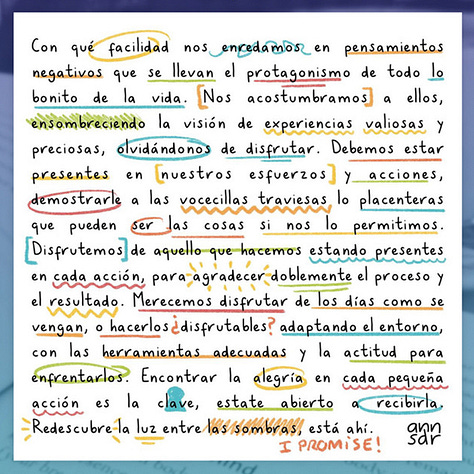 Con qué facilidad nos enredamos en pensamientos
negativos que se llevan el protagonismo de todo lo
bonito de la vida. [Nos acostumbramos] a ellos,
ensombreciendo la visión de experiencias valiosas y
preciosas, olvidándonos de disfrutar. Debemos estar
presentes en [nuestros esfuerzos] y acciones,
demostrarle a las vocecillas traviesas lo placenteras
que pueden ser las cosas si nos lo permitimos.
[Disfrutemos] de aquello que hacemos estando presentes
en cada acción, para agradecer doblemente el proceso y
el resultado. Merecemos disfrutar de los días como se
vengan, o hacerlos ¿disfrutables? adaptando el entorno,
con las herramientas adecuadas y la actitud para
enfrentarlos. Encontrar la alegría en cada pequeña
acción es la clave, estate abierto a recibirla.
Redescubre la luz entre las sombras, está ahí.
I PROMISE!
ann
sar